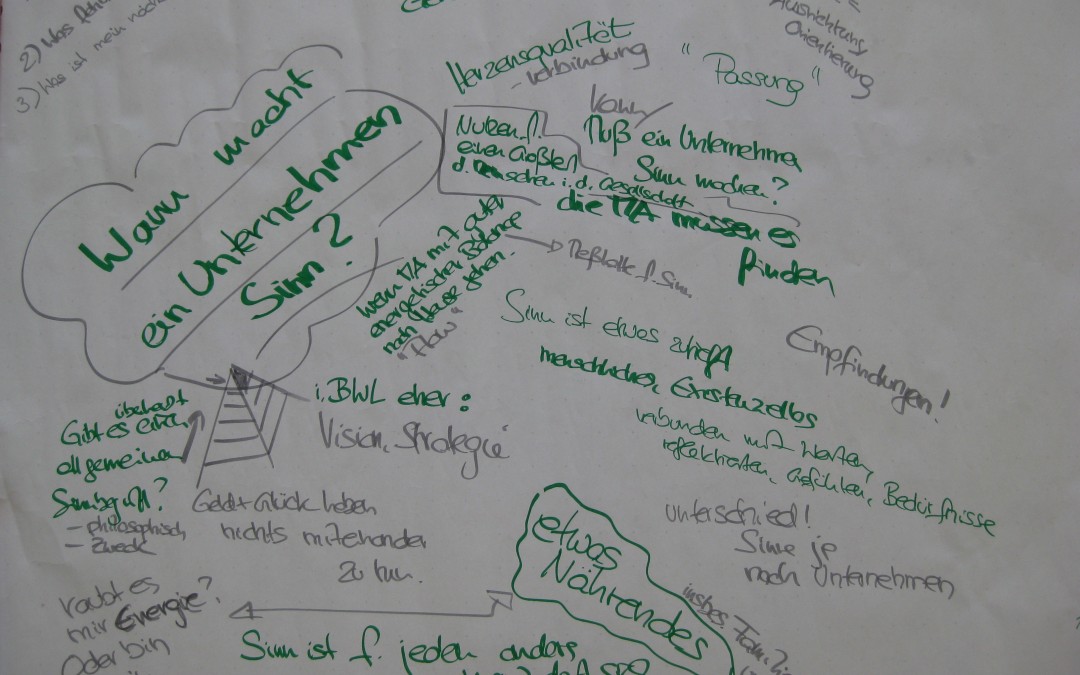 2) Was
3) Was ist mein
Ausrichtung,
Orientierung
Herzensqualität
- verbindung
"Passung"
Wann macht
ein Unternehmen
Sinn?
Nutzen f.
einen Großteil
d. Menschen i. d. Gesellschaft
Kann
Muß ein Unternehmen
Sinn machen?
die MA müssen es
finden
wenn MA mit guter
energetischer Balance
nach Hause gehen.
"Flow"
Meßlatte f. Sinn
Sinn ist etwas zutiefst
menschliches, Existenzielles
verbunden mit Werten,
Gefühlen, Bedürfnisse
Empfindungen!
i. BWL eher:
Vision, Strategie
überhaupt
Gibt es einen
allgemeinen
Sinnbegriff?
- philosophisch
- Zweck
Geld + Glück haben
nichts miteinander
zu tun.
Unterschied!
Sinn je
nach Unternehmen
etwas
Nährendes
insbes.
raubt es
mir Energie?
Oder bin
Sinn ist f. jeden anders,